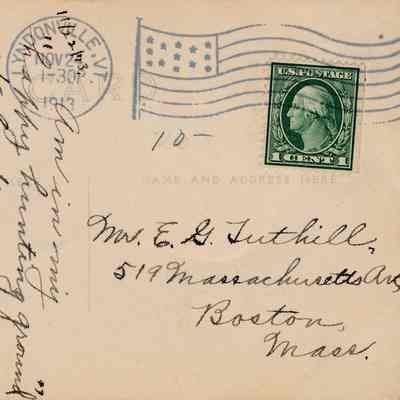 LYNDONVILLE, VT.
NOV 2
1-30P
1913
11/2/13
U.S. POSTAGE
1 CENT 1
10-
NAME AND ADDRESS HERE
Mr. E. G. Tuthill,
519 Massachusetts Ave,
Boston,
Mass.
Am in my
"happy hunting ground"